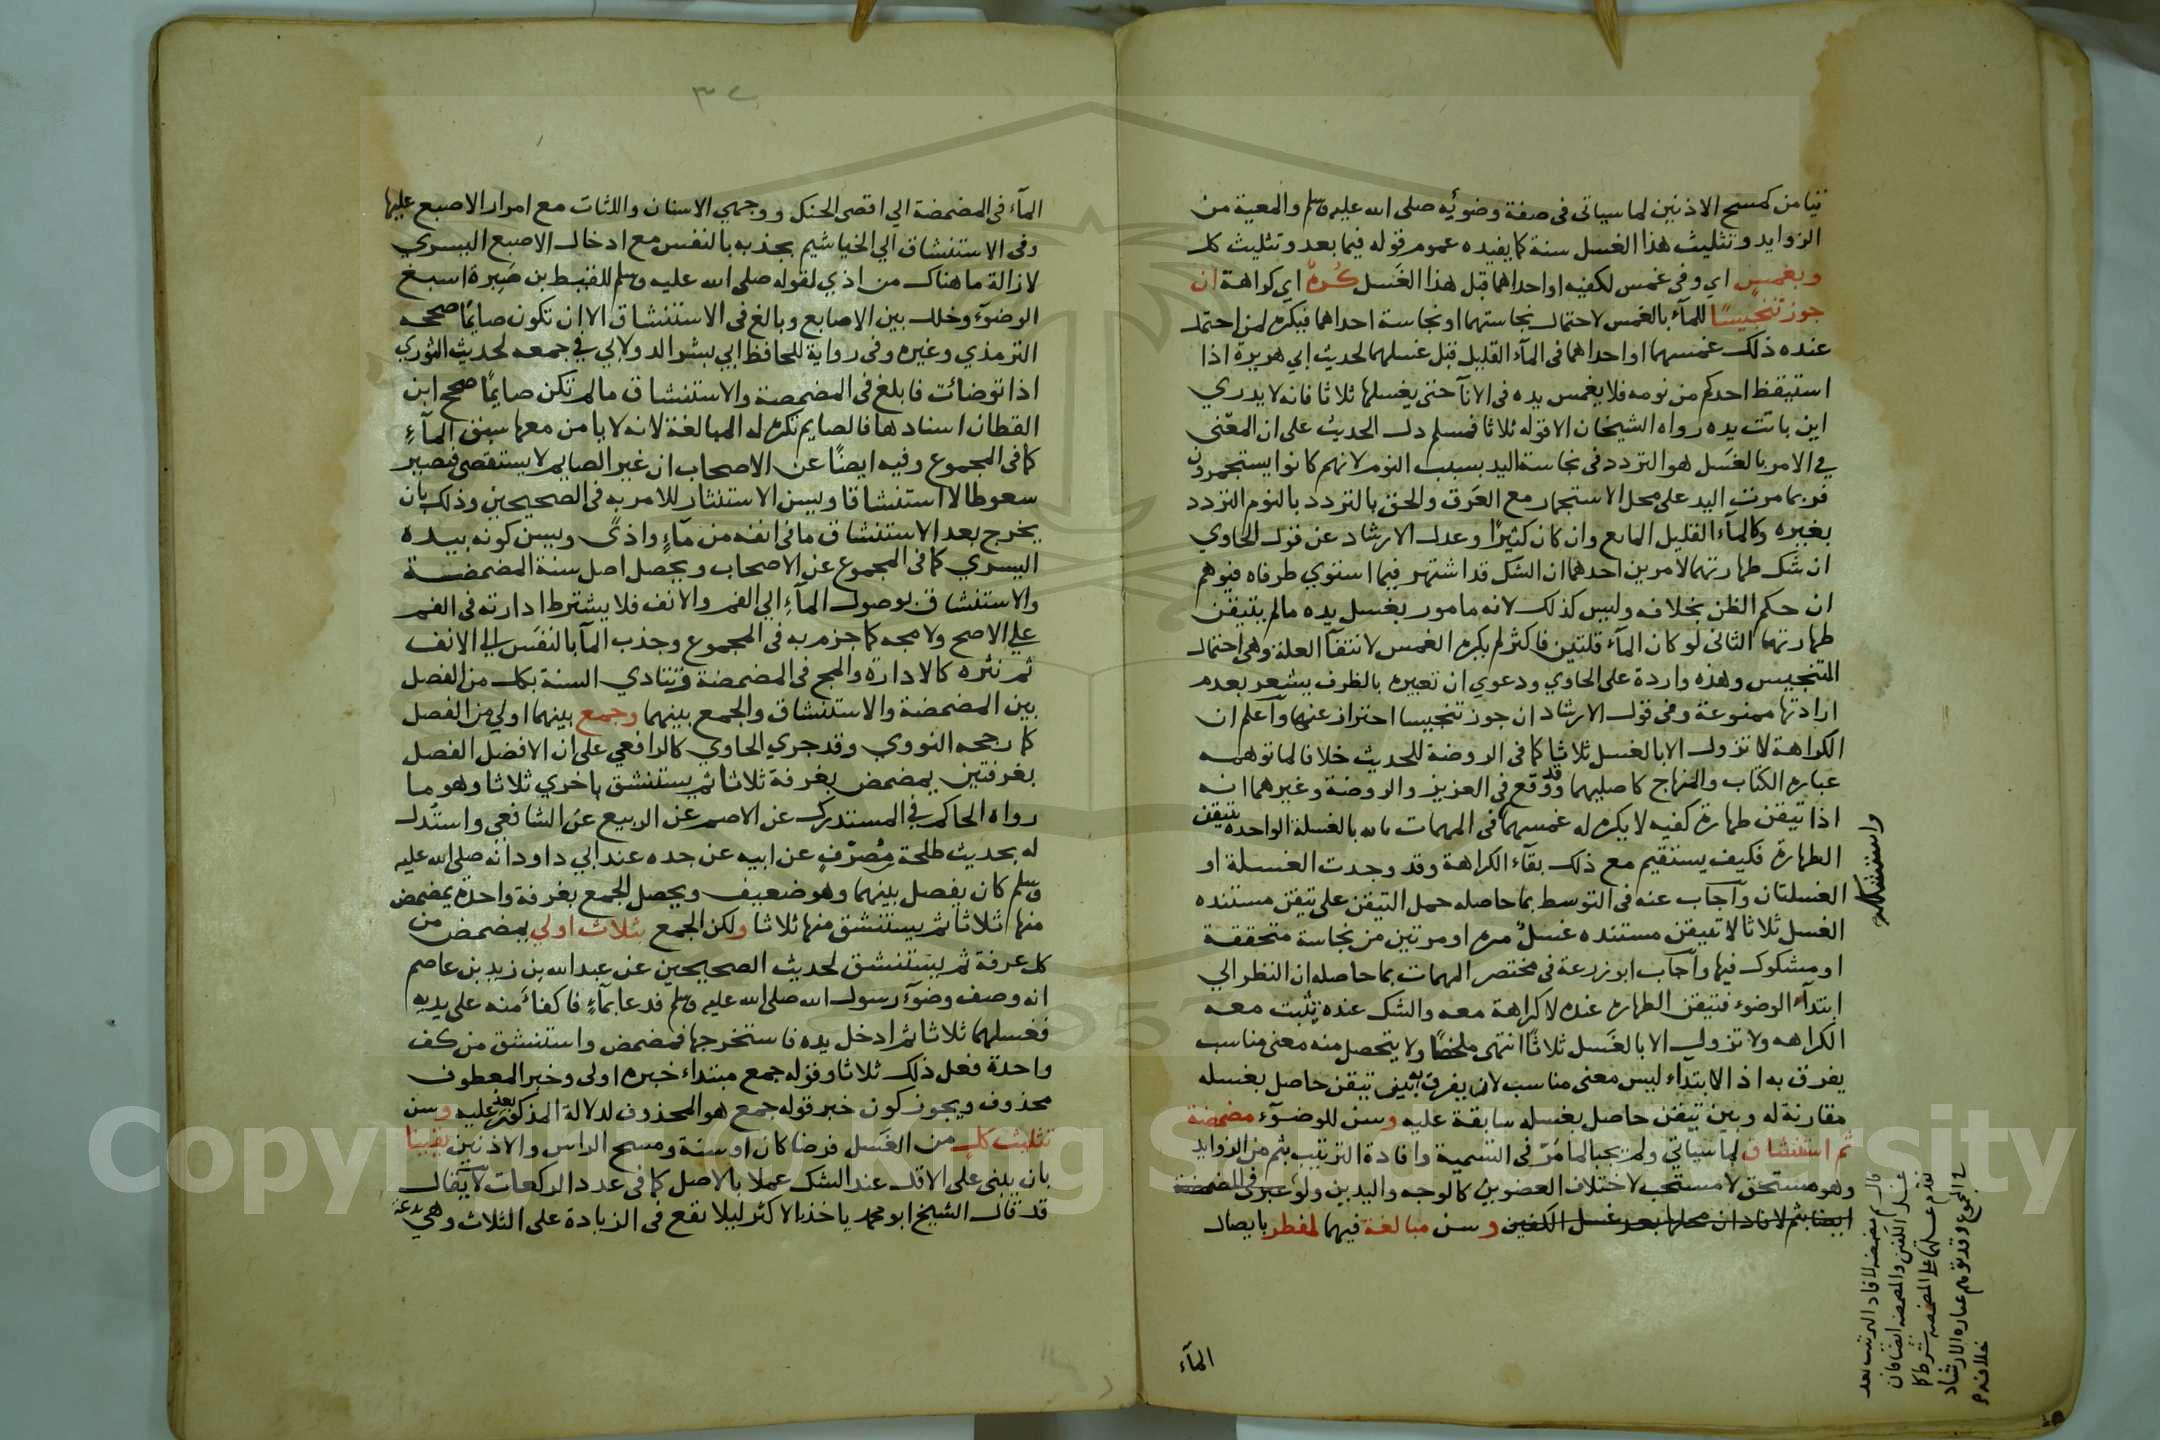 تيامن كمسح الاذنين لما سياتى فى صفة وضوئه صلى الله عليه وسلم والمعية من
الزوايد وتثليث هذا الغسل سنة كما يفيده عموم قوله فيما بعد وتثليث كل
وبغمس اي وفى غمس لكفيه او احداهما قبل هذا الغسل كُره اي كراهة ان
جوز تنجيسًا للمآء بالغمس لاحتمال نجاستهما او نجاسة احداهما فيكره لمن احتمل
عنده ذلك غمسهما او احداهما فى المآء القليل قبل غسلهما لحديث ابي هريرة اذا
استيقظ احدكم من نومه فلا يغمس يده فى الانآ حتى يغسلها ثلاثا فانه لا يدري
اين باتت يده رواه الشيخان الا قوله ثلاثا فمسلم دل الحديث على ان المعنى
في الامر بالغسل هو التردد فى نجاسة اليد بسبب النوم لانهم كانوا يستجمرون
فربما مرت اليد على محل الاستجمار مع العرق والحق بالتردد بالنوم التردد
بغيره وكالمآء القليل المايع وان كان كثيرًا وعدل الارشاد عن قول الحاوي
ان شك طهارتهما لامرين احدهما ان الشك قد اشتهر فيما استوي طرفاه فيوهم
ان حكم الظن بخلافه وليس كذلك لانه مامور بغسل يده مالم يتيقن
طهارتهما الثانى لو كان المآء قلتين فاكثر لم يكره الغمس لانتفآ العلة وهى احتمال
التنجيس وهذه واردة على الحاوي ودعوي ان تعبيره بالظرف يشعر بعدم
ارادتها ممنوعة وفى قول الارشاد ان جوز تنجيسا احتراز عنها وآعلم ان
الكراهة لا تزول الا بالغسل ثلاثا كما فى الروضة للحديث خلافا لما توهمه
عبارة الكتاب والمنهاج كاصليهما وقد وقع فى العزيز والروضة وغيرهما انه
اذا تيقن طهارة كفيه لا يكره له غمسهما فى المهمات بانه بالغسلة الواحدة تتيقن
الطهارة فكيف يستقيم مع ذلك بقآء الكراهة وقد وجدت الغسلة او
الغسلتان وآجاب عنه فى التوسط بما حاصله حمل التيقن على تيقن مستنده
الغسل ثلاثا لا تيقن مستنده غسل مرة او مرتين من نجاسة متحققة
او مشكوك فيها وآجاب ابو زرعة فى مختصر المهمات بما حاصله ان النظر الي
ابتدآء الوضوء فتيقن الطهارة عنده لا كراهة معه والشك عنده يثبت معه
الكراهه ولا تزول الا بالغسل ثلاثًا انتهى ملخصًا ولا يتحصل منه معنى مناسب
يفرق به اذ الابتدآء ليس معنى مناسب لان يفرق به بين تيقن حاصل بغسله
مقارنة له وبين تيقن حاصل بغسله سابقة عليه وسن للوضوء مضمضة
ثم استنشاق لما سياتي ولم يجبا لما مرّ فى التسمية وافادة الترتيب بثم من الزوايد
وهو مستحق لا مستحب لاختلاف العضوين كالوجه واليدين ولو عبر فى المضمضة
ايضا بثم لافاد ان محلها بعد غسل الكفين وسن مبالغة فيهما لمفطر بايصال
واستنشاقه
قال
غسل الكفين والمضمضة ايضا فان
تقدم
في المجموع وقد توهم عبارة الارشاد
خلافه
المآء
المآء فى المضمضة الي اقصى الحنك ووجهي الاسنان واللثات مع امرار الاصبع عليها
وفى الاستنشاق الي الخياشيم بجذبه بالنفس مع ادخال الاصبع اليسري
لازالة ما هناك من اذي لقوله صلى الله عليه وسلم للقيط بن صبرة اسبغ
الوضوء وخلل بين الاصابع وبالغ فى الاستنشاق الا ان تكون صايمًا صححه
الترمذي وغيره وفى رواية للحافظ ابي بشر الدولابي في جمعه لحديث الثوري
اذا توضأت فابلغ فى المضمضة والاستنشاق مالم تكن صايمًا صحح ابن
القطان اسنادها فالصايم تكره له المبالغة لانه لا يامن معها سبق المآء
كما فى المجموع وفيه ايضًا عن الاصحاب ان غير الصايم لا يستقصي فيصير
سعوطا لا استنشاقا ويسن الاستنثار للامر به فى الصحيحين وذلك بان
يخرج بعد الاستنشاق ما فى انفه من مآء واذي ويسن كونه بيده
اليسري كما فى المجموع عن الاصحاب ويحصل اصل سنة المضمضة
والاستنشاق بوصول المآء الي الفم والانف فلا يشترط ادارته فى الفم
علي الاصح ولا مجه كما جزم به فى المجموع وجذب المآ بالنفس الي الانف
ثم نثره كالادارة والمج فى المضمضة وتتادي السنة بكل من الفصل
بين المضمضة والاستنشاق والجمع بينهما وجمع بينهما اولي من الفصل
كما رجحه النووي وقد جري الحاوي كالرافعي على ان الافضل الفصل
بغرفتين يمضمض بغرفة ثلاثا ثم يستنشق باخري ثلاثا وهو ما
رواه الحاكم في المستدرك عن الاصم عن الربيع عن الشافعي واستدل
له بحديث طلحة مصرّف عن ابيه عن جده عند ابي داود انه صلى الله عليه
وسلم كان يفصل بينهما وهو ضعيف ويحصل الجمع بغرفة واحدة يمضمض
منها ثلاثا ثم يستنشق منها ثلاثا ولكن الجمع بثلاث اولي يمضمض من
كل غرفة ثم يستنشق لحديث الصحيحين عن عبد الله بن زيد بن عاصم
انه وصف وضوء رسول الله صلى الله عليه وسلم فدعا بمآء فاكفأ منه على يديه
فغسلهما ثلاثا ثم ادخل يده فاستخرجها فمضمض واستنشق من كف
واحدة فعل ذلك ثلاثا وقوله جمع مبتداء خبره اولى وخبر المعطوف
محذوف ويجوز كون خبر قوله جمع هو المحذوف لدلالة المذكور بعد عليه وسن
تثليث كل من الغسل فرضا كان او سنة ومسح الراس والاذنين يقينا
بان يبني على الاقل عند الشك عملا بالاصل كما فى عدد الركعات لا يقال
قد قال الشيخ ابو محمد ياخذ بالاكثر ليلا يقع فى الزيادة على الثلاث وهي بدعة
Copyright © King Saud University